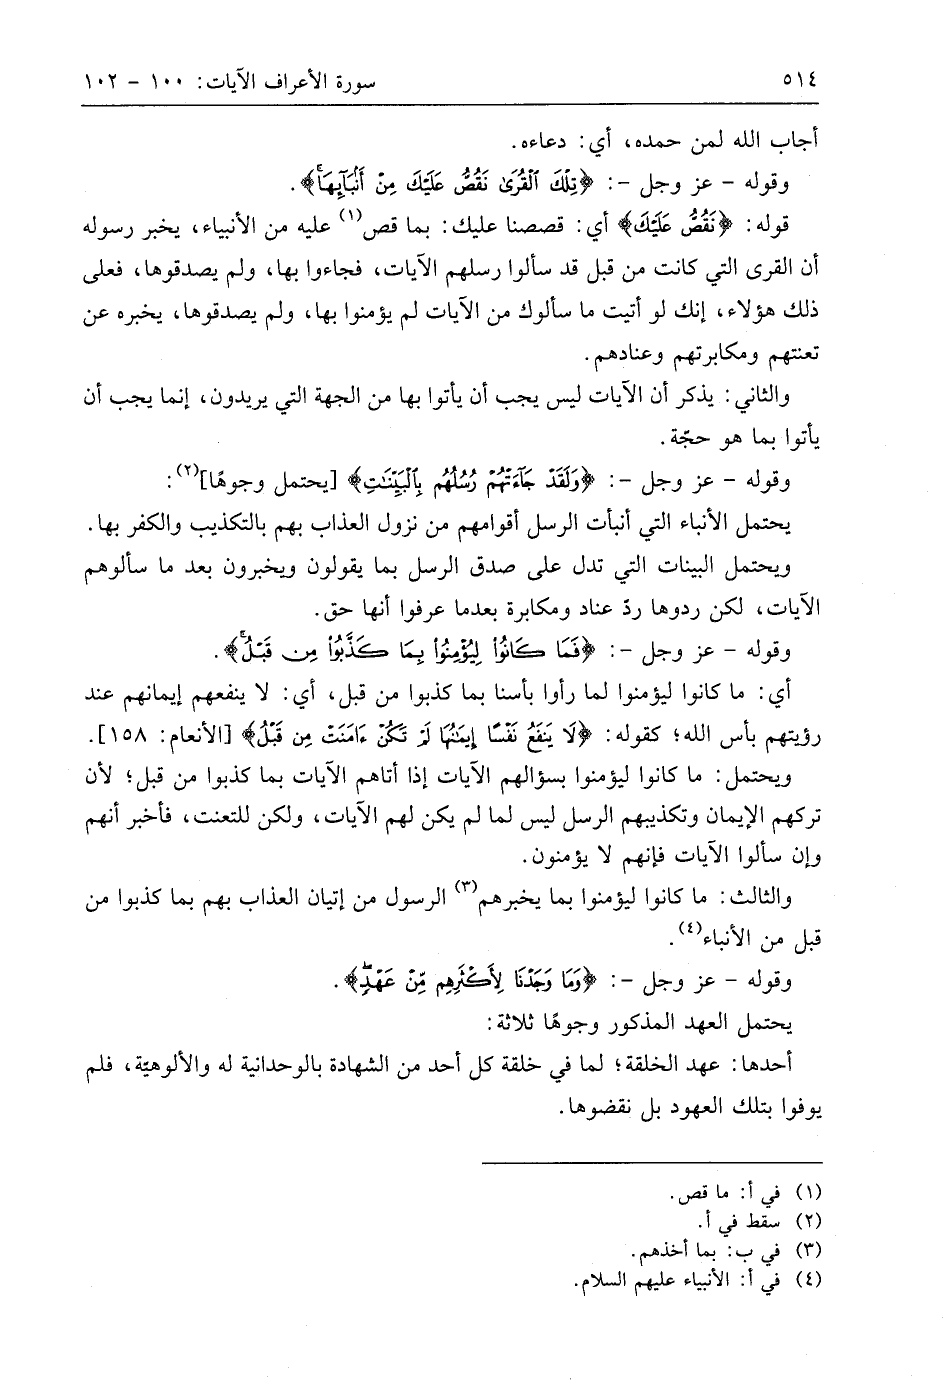 ٥١٤ سورة الأعراف الآيات: ١٠٠ - ١٠٢
أجاب الله لمن حمده، أي: دعاءه.
وقوله - عز وجل -: ﴿تِلْكَ ٱلْقُرَىٰ نَقُصُّ عَلَيْكَ مِنْ أَنۢبَآئِهَاۚ﴾.
قوله: ﴿نَقُصُّ عَلَيْكَ﴾ أي: قصصنا عليك: بما قص(١) عليه من الأنبياء، يخبر رسوله
أن القرى التي كانت من قبل قد سألوا رسلهم الآيات، فجاءوا بها، ولم يصدقوها، فعلى
ذلك هؤلاء، إنك لو أتيت ما سألوك من الآيات لم يؤمنوا بها، ولم يصدقوها، يخبره عن
تعنتهم ومكابرتهم وعنادهم.
والثاني: يذكر أن الآيات ليس يجب أن يأتوا بها من الجهة التي يريدون، إنما يجب أن
يأتوا بما هو حجّة.
وقوله - عز وجل -: ﴿وَلَقَدْ جَآءَتْهُمْ رُسُلُهُم بِٱلْبَيِّنَٰتِ﴾ [يحتمل وجوهًا](٢):
يحتمل الأنباء التي أنبأت الرسل أقوامهم من نزول العذاب بهم بالتكذيب والكفر بها.
ويحتمل البينات التي تدل على صدق الرسل بما يقولون ويخبرون بعد ما سألوهم
الآيات، لكن ردوها ردّ عناد ومكابرة بعدما عرفوا أنها حق.
وقوله - عز وجل -: ﴿فَمَا كَانُوا۟ لِيُؤْمِنُوا۟ بِمَا كَذَّبُوا۟ مِن قَبْلُۚ﴾.
أي: ما كانوا ليؤمنوا لما رأوا بأسنا بما كذبوا من قبل، أي: لا ينفعهم إيمانهم عند
رؤيتهم بأس الله؛ كقوله: ﴿لَا يَنفَعُ نَفْسًا إِيمَٰنُهَا لَمْ تَكُنْ ءَامَنَتْ مِن قَبْلُ﴾ [الأنعام: ١٥٨].
ويحتمل: ما كانوا ليؤمنوا بسؤالهم الآيات إذا أتاهم الآيات بما كذبوا من قبل؛ لأن
تركهم الإيمان وتكذيبهم الرسل ليس لما لم يكن لهم الآيات، ولكن للتعنت، فأخبر أنهم
وإن سألوا الآيات فإنهم لا يؤمنون.
والثالث: ما كانوا ليؤمنوا بما يخبرهم(٣) الرسول من إتيان العذاب بهم بما كذبوا من
قبل من الأنباء(٤).
وقوله - عز وجل -: ﴿وَمَا وَجَدْنَا لِأَكْثَرِهِم مِّنْ عَهْدٍۖ﴾.
يحتمل العهد المذكور وجوهًا ثلاثة:
أحدها: عهد الخلقة؛ لما في خلقة كل أحد من الشهادة بالوحدانية له والألوهيّة، فلم
يوفوا بتلك العهود بل نقضوها.
(١) في أ: ما قص.
(٢) سقط في أ.
(٣) في ب: بما أخذهم.
(٤) في أ: الأنبياء عليهم السلام.